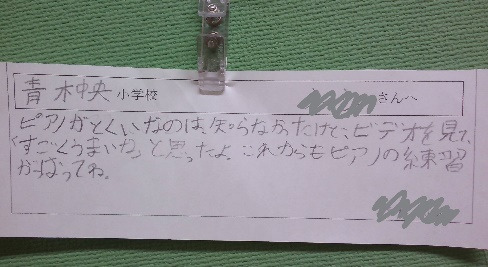 青木中央小学校 さんへ
ピアノがとくいなのは、知らなかったけど、ビデオを見て、
「すごくうまいな」と思ったよ。これからもピアノの練習
がばってね。